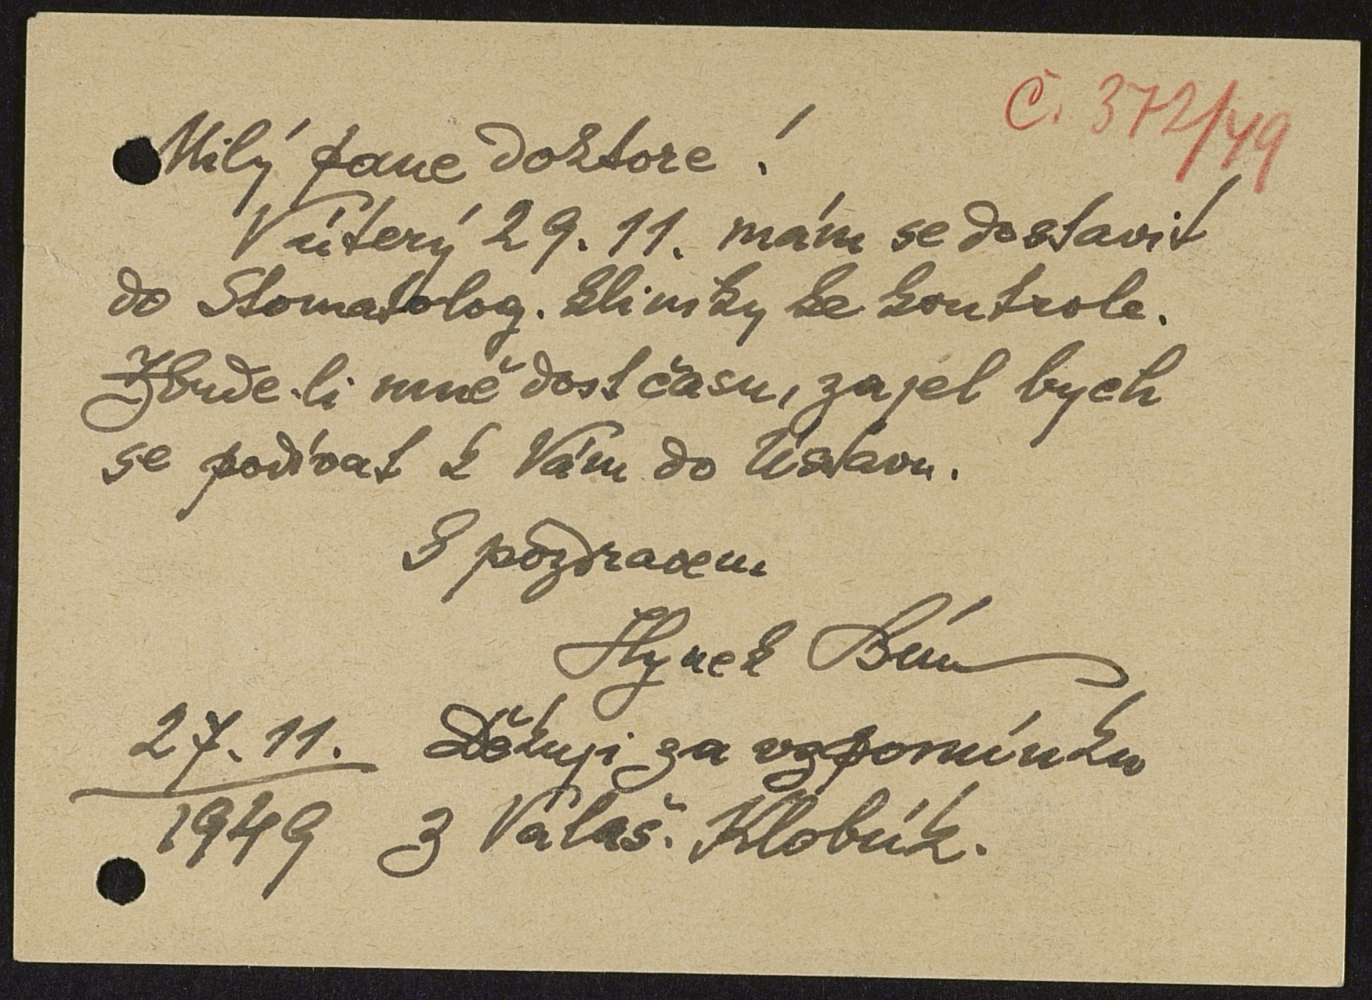 Č. 372/49
Milý pane doktore!
V úterý 29. 11. mám se dostavit
do Stomatolog. kliniky ke kontrole.
Zbude-li mně dost času, zajel bych
se podívat k Vám do Ústavu.
S pozdravem
Hynek Bím
27. 11. Děkuji za vzpomínku
1949 z Valaš. Klobúk.